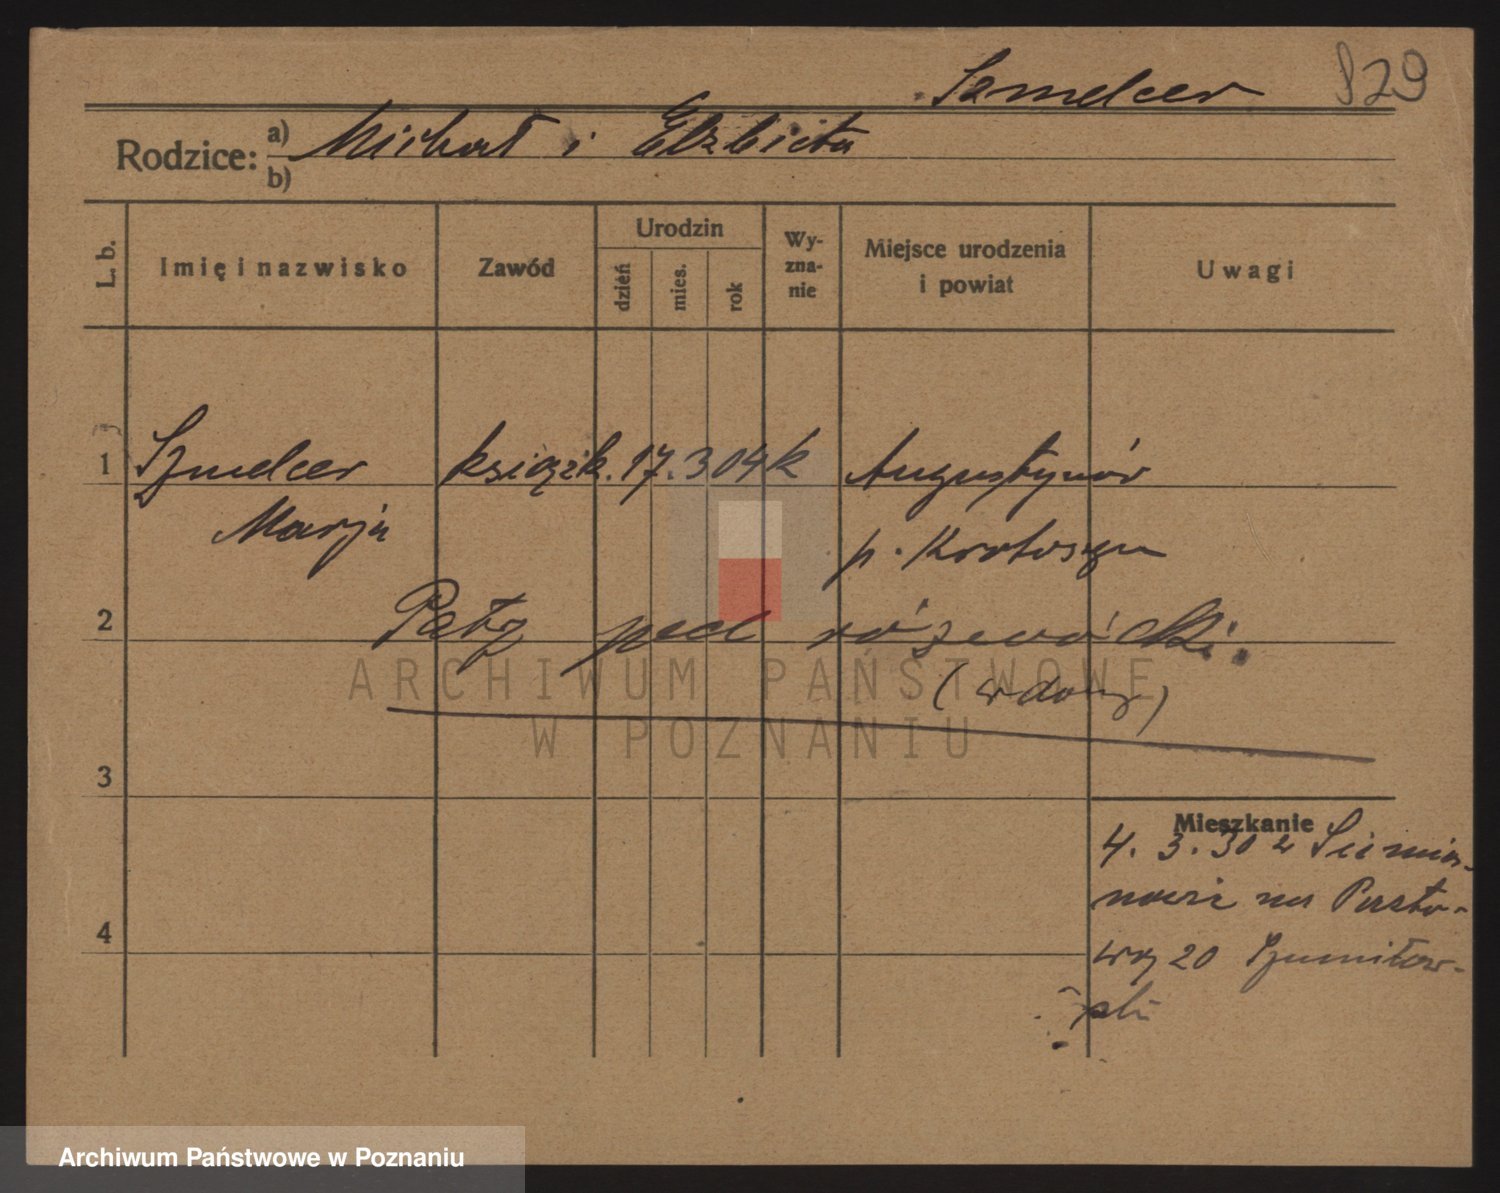 Szmelcer 829
Rodzice: a) Michał i Elżbieta
b)
L. b. Imię i nazwisko Zawód Urodzin dzień mies. rok Wy-zna-nie Miejsce urodzenia i powiat Uwagi
1 Szmelcer książk. 17. 3 04 k Augustynów
Marja p. Krotoszyn
2 Patrz pod
(wdowy)
ARCHIWUM PAŃSTWOWE
W POZNANIU
3
Mieszkanie
4. 3. 30 z Siemia-
nowic na Pusto-
4 wy 20
Archiwum Państwowe w Poznaniu